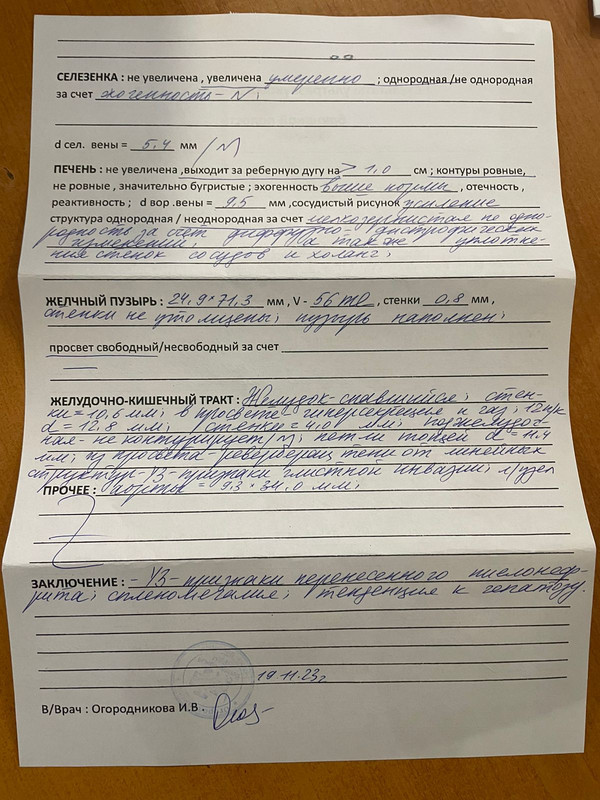 СЕЛЕЗЕНКА : не увеличена , увеличена умеренно ; однородная /не однородная
за счет эхогенность - N;
d сел. вены = 5.4 мм /N
ПЕЧЕНЬ : не увеличена ,выходит за реберную дугу на > 1.0 см ; контуры ровные,
не ровные , значительно бугристые ; эхогенность выше нормы , отечность ,
реактивность ; d вор .вены = 9.5 мм ,сосудистый рисунок усиление
структура однородная / неоднородная за счет мелкозернистая не одно-
родность за счет диффузно-дистрофических
изменений, а также уплотне-
ния стенок сосудов и холанг;
ЖЕЛЧНЫЙ ПУЗЫРЬ : 24.9*71.3 мм , V - 56 ml , стенки 0,8 мм ,
стенки не утолщены; пузырь наполнен;
просвет свободный/несвободный за счет
ЖЕЛУДОЧНО-КИШЕЧНЫЙ ТРАКТ : Желудок-спавшийся; стен-
ки = 10,6 мм; в просвете гиперсекреция и газ; 12п/к
d = 12,8 мм; стенки = 4.0 мм; поджелудоч-
ная - не контурирует/N; петли тощей d = 11.4
мм; из просвета реверберац. тени от линейных
структур-УЗ-признаки глистной инвазии; л/узел
ПРОЧЕЕ : = 9.3 * 34.0 мм;
ЗАКЛЮЧЕНИЕ : - УЗ-признаки перенесенного пиелонеф-
рита; спленомегалия; тенденция к гепатозу.
19.11.23г
В/Врач : Огородникова И.В .